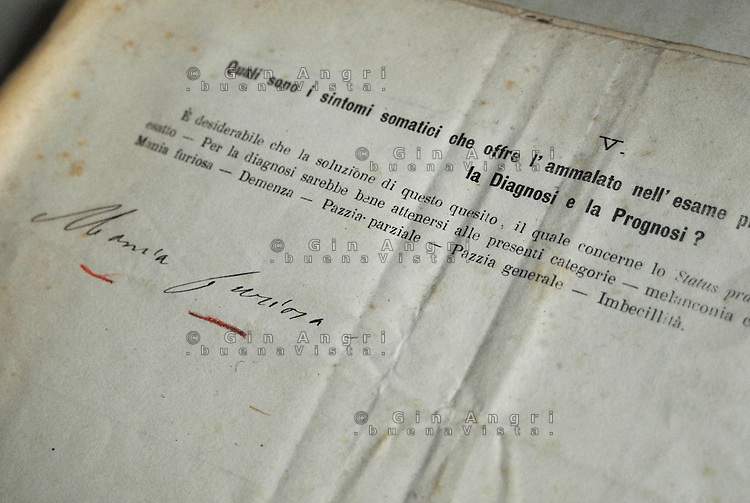 V.
Quali sono i sintomi somatici che offre l'ammalato nell'esame
la Diagnosi e la Prognosi ?
È desiderabile che la soluzione di questo quesito, il quale concerne lo Status
esatto — Per la diagnosi sarebbe bene attenersi alle presenti categorie — melanconia
Mania furiosa — Demenza — Pazzia parziale — Pazzia generale — Imbecillità.
Mania furiosa
© Gin Angri
.buenaVista.
© Gin Angri
.buenaVista.
© Gin Angri
.buenaVista.
© Gin Angri
.buenaVista.
© Gin Angri
.buenaVista.